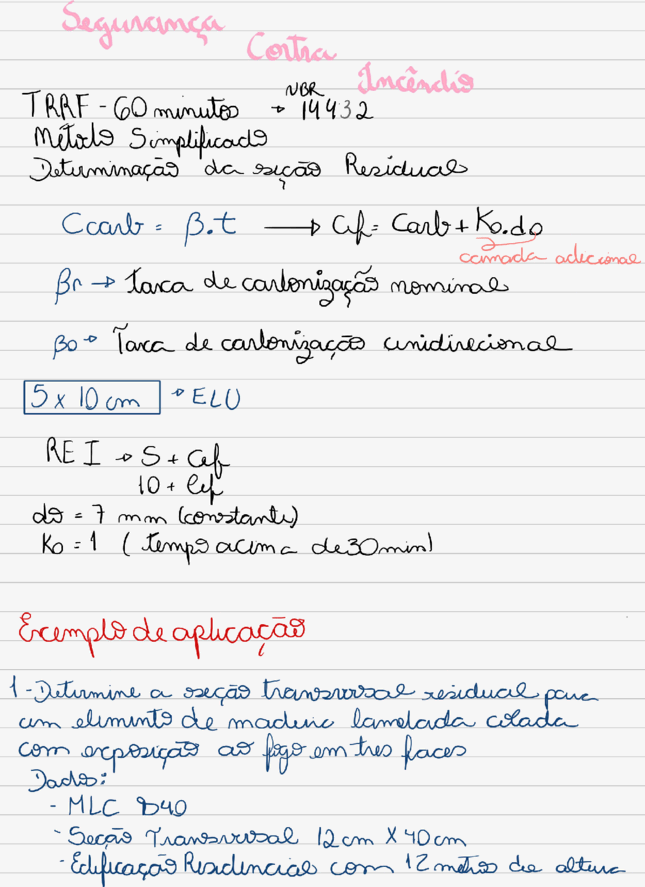 Segurança
Contra
Incêndio
TRRF - 60 minutos → NBR 14432
Método Simplificado
Determinação da seção Residual
Ccarb = β.t → Cef = Carb + Ko.do
camada adicional
βn → Taxa de carbonização nominal
βo → Taxa de carbonização unidirecional
5 x 10 cm → ELU
REI → 5 + Cef
10 + Cef
do = 7 mm (constante)
Ko = 1 (tempo acima de 30 min)
Exemplo de aplicação
1 - Determine a seção transversal residual para
um elemento de madeira lamelada colada
com exposição ao fogo em tres faces
Dados:
- MLC D40
- Seção Transversal 12cm X 40cm
- Edificação Residencial com 12 metros de altura